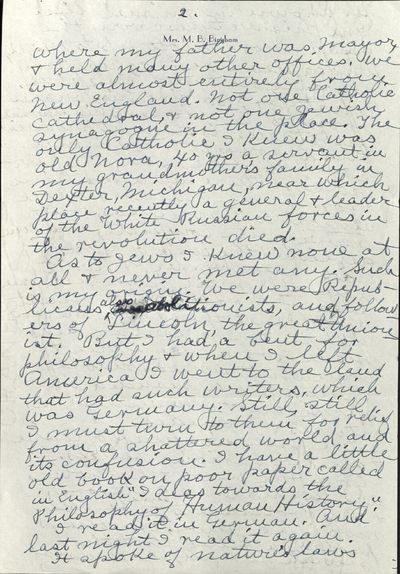 2.
Mrs. M. B. Bingham
where my father was Mayor
& held many other offices, we
were almost entirely from
New England. Not one Catholic
cathedral, & not one Jewish
synagogue in the place. The
only Catholic I knew was
old Nora, 40 yrs a servant in
my grandmother's family in
Dexter, Michigan, near which
place recently a general & leader
of the White Russian forces in
the revolution died.
As to Jews I knew none at
all & never met any. Such
is my origin. We were Repub-
licans, as
Abolitionists, and follow
ers of Lincoln, the great Union-
ist. But I had a bent for
philosophy & when I left
America I went to the land
that had such writers, which
was Germany. Still, still
I must turn to them for relief
from a shattered world and
its confusion. I have a little
old book on poor paper called
in English "Ideas towards the
Philosophy of Human History."
I read it in German. And
last night I read it again.
It spoke of nature's laws